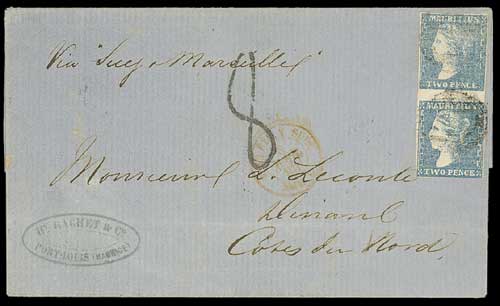 Via Suez & Marseilles
8
MAURITIUS
TWO PENCE
MAURITIUS
TWO PENCE
Monsieur L. Leconte
Dinan
Cotes du Nord
Hy. RACHET & Co
PORT-LOUIS (MAURICE)